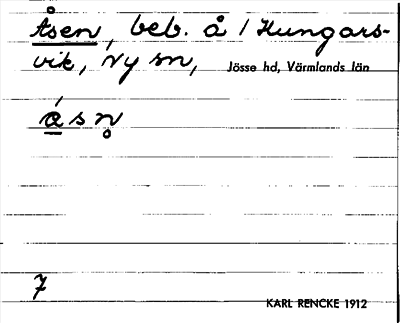 Åsen, beb. å / Hungars-
vik, Ny sn, Jösse hd, Värmlands län
ǻsn̥
7
KARL RENCKE 1912